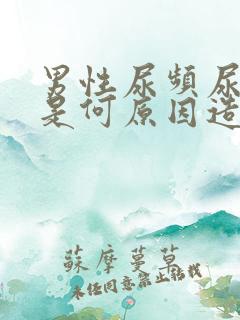 男性尿頻尿
是何原因造
蘇摩蔓草
未经同意禁止转载